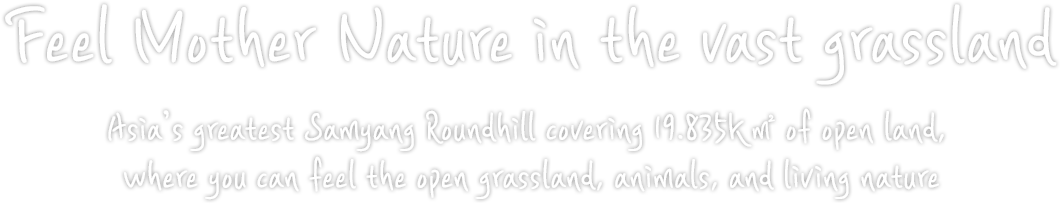 Feel Mother Nature in the vast grassland
Asia's greatest Samyang Roundhill covering 19.835km² of open land,
where you can feel the open grassland, animals, and living nature